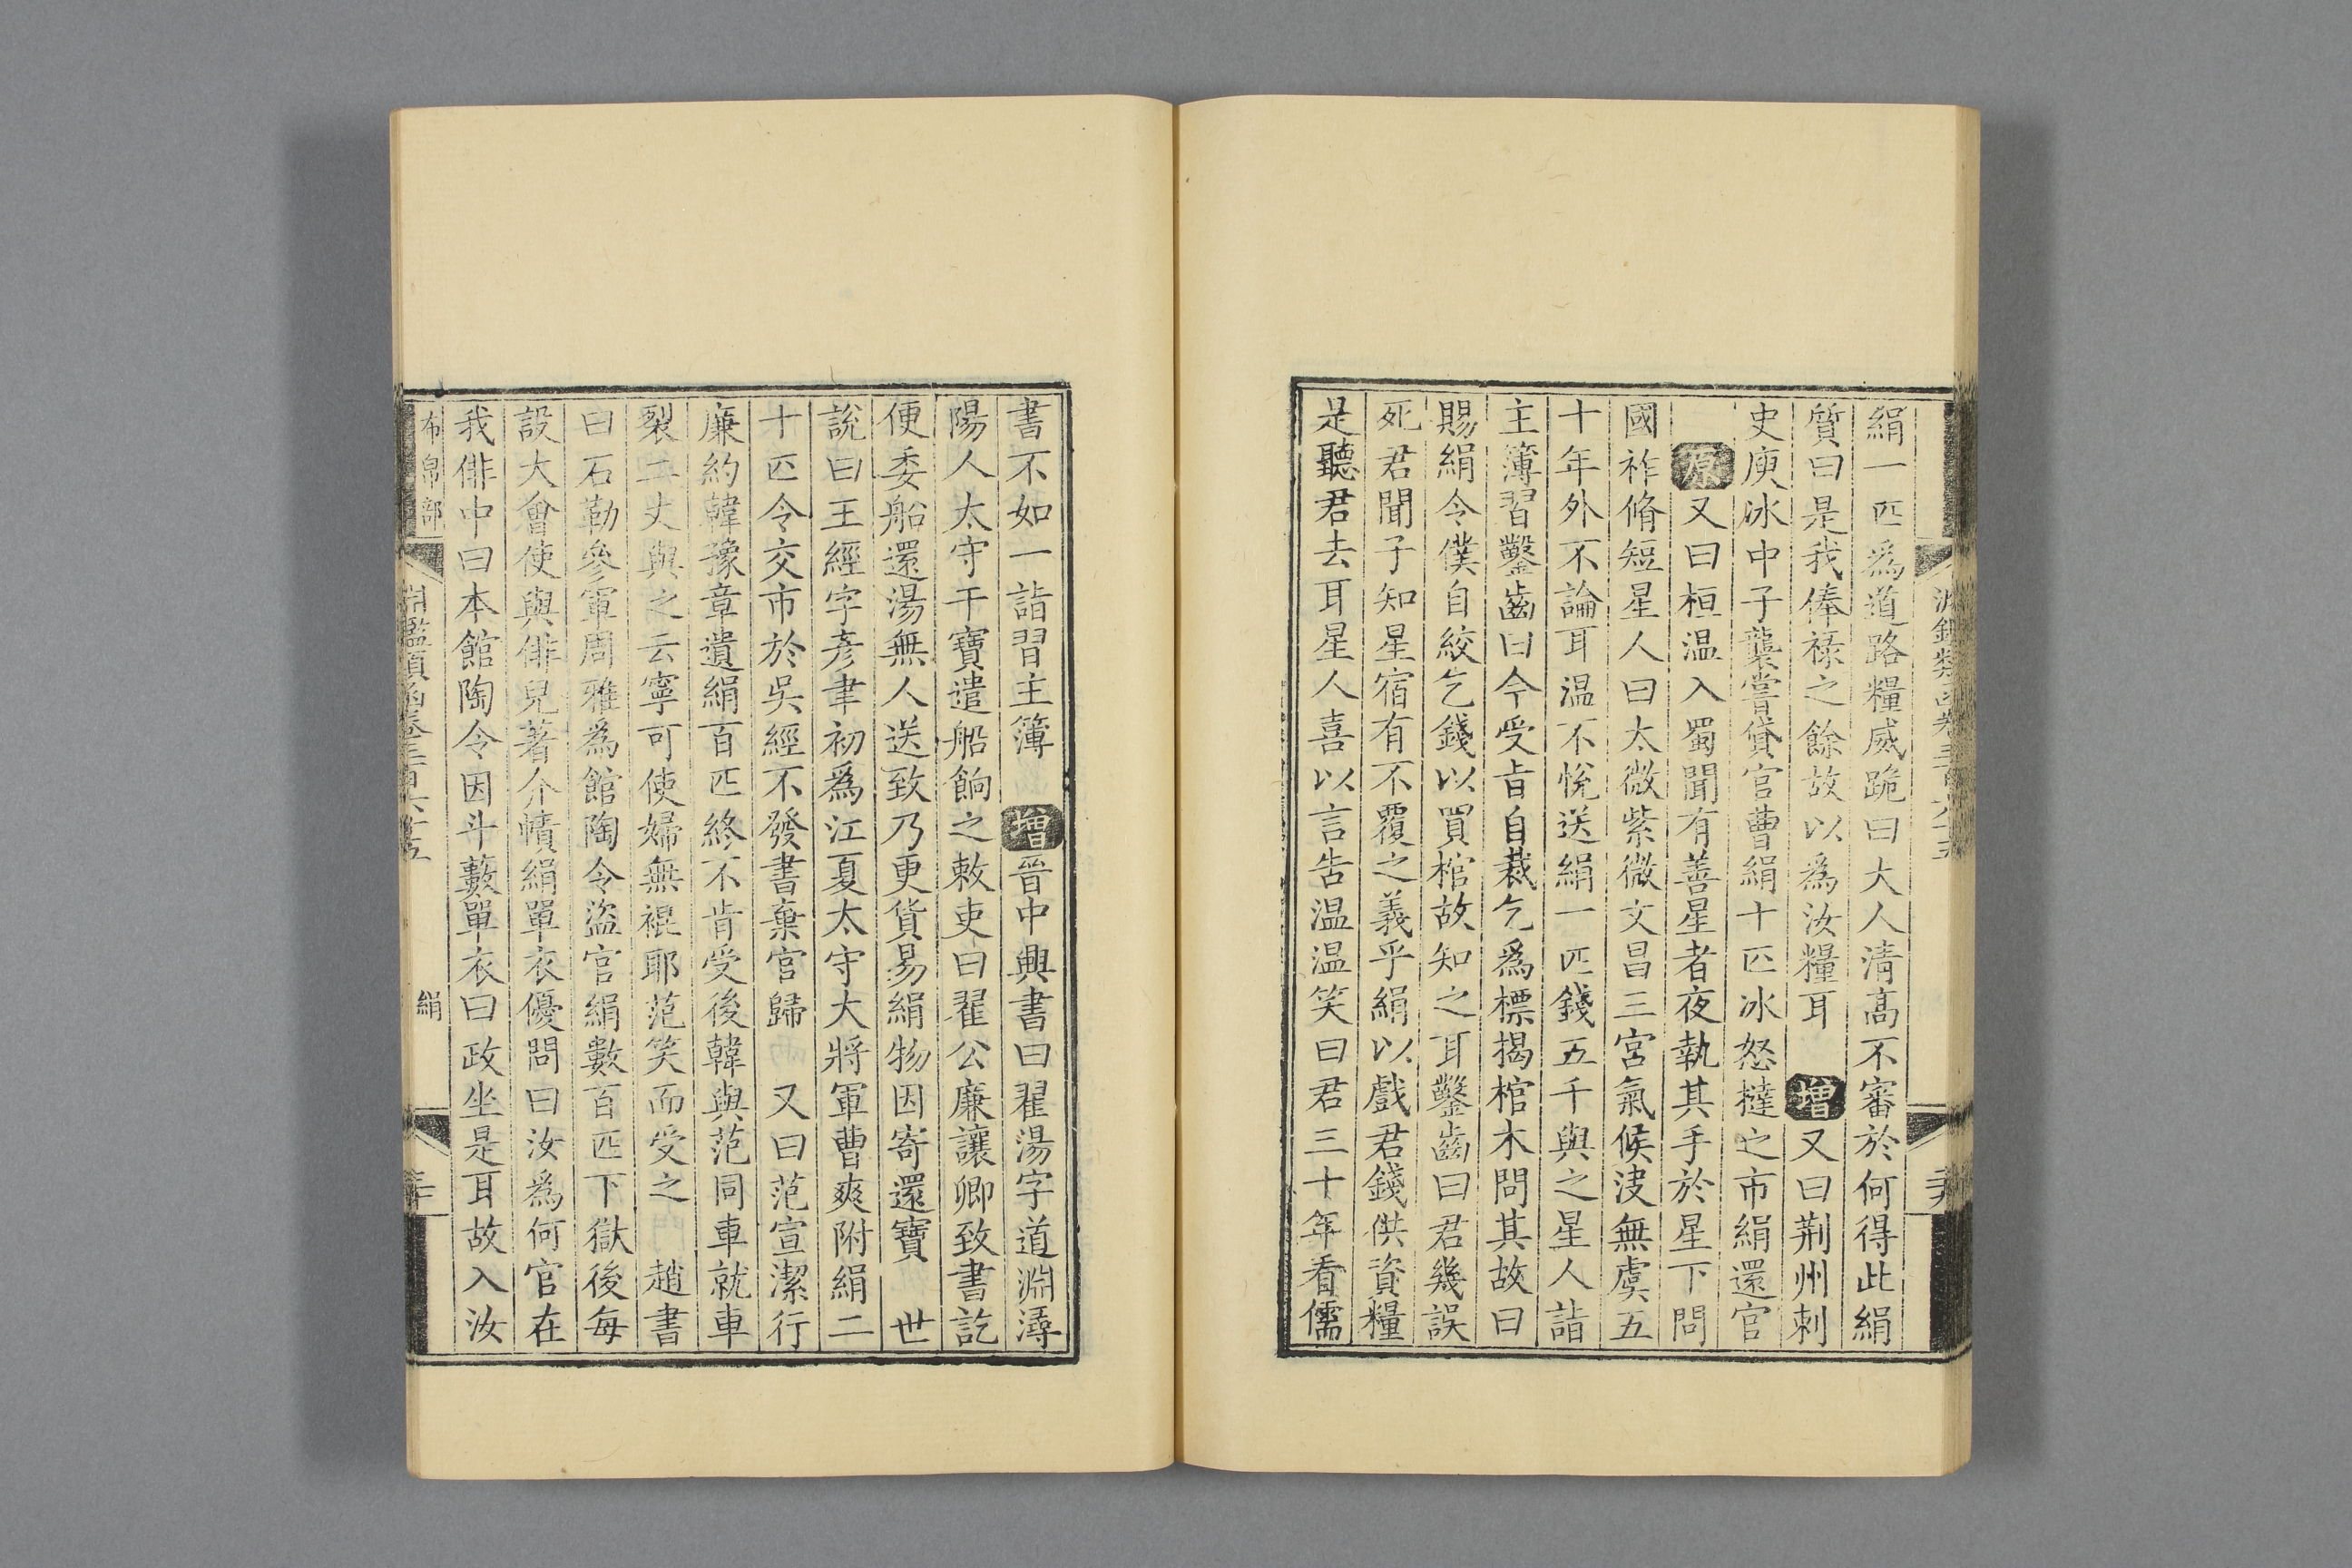 絹一匹爲道路糧威跪曰大人清高不審於何得此絹
質曰是我俸祿之餘故以爲汝糧耳 增又曰荆州刺
史庾冰中子襲嘗貸官曹絹十匹冰怒撻之市絹還官
原又曰桓温入蜀聞有善星者夜執其手於星下問
國祚脩短星人曰太微紫微文昌三宮氣候決無虞五
十年外不論耳温不悅送絹一匹錢五千與之星人詣
主簿習鑿齒曰今受旨自裁乞爲標揭棺木問其故曰
賜絹令僕自絞乞錢以買棺故知之耳鑿齒曰君幾誤
死君聞子知星宿有不覆之義乎絹以戲君錢供資糧
是聽君去耳星人喜以言告温温笑曰君三十年看儒
書不如一詣習主簿 增晉中興書曰翟湯字道淵潯
陽人太守干寶遣船餉之敕吏曰翟公廉讓卿致書訖
便委船還湯無人送致乃更貨易絹物因寄還寶 世
說曰王經字彥聿初爲江夏太守大將軍曹爽附絹二
十匹令交市於吳經不發書棄官歸 又曰范宣潔行
廉約韓豫章遺絹百匹終不肯受後韓與范同車就車
裂二丈與之云寧可使婦無裩耶范笑而受之 趙書
曰石勒參軍周雅爲館陶令盜官絹數百匹下獄後每
設大會使與俳兒著介幘絹單衣優問曰汝爲何官在
我俳中曰本館陶令因斗藪單衣曰政坐是耳故入汝
布帛部 淵鑑類函卷三百六十五 絹